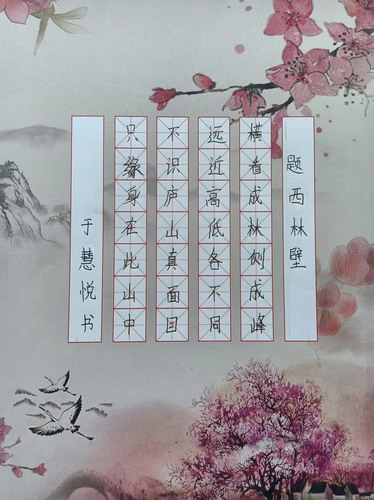 题西林壁
横看成林侧成峰
远近高低各不同
不识庐山真面目
只缘身在此山中
于慧悦书